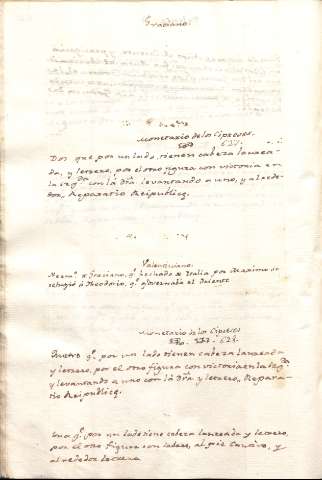 Graciano.
Monetario de los Cipreses.
Dos que, por un lado, tienen cabeza laurea-
da, y letrero, por el otro figura con victoria en
la izq.da con la dra. levantando a uno, y al rede-
dor, Reparatio Reipublicę.
Valentiniano.
Herm.o de Graciano, q.e hechado de Italia por Maximo se
refugió á Theodosio, q.e governaba el Oriente
Monetario de los Cipreses
Quatro q.e por un lado tienen cabeza laureada
y letrero, por el otro figura con victoria en la izq.da
y levantando a uno con la dra y letrero, Repara-
tio Reipublicę.
Una q.e por un lado tiene cabeza laureada y letrero,
por el otro figura con labaro, al pie cautivo, y
al rededor